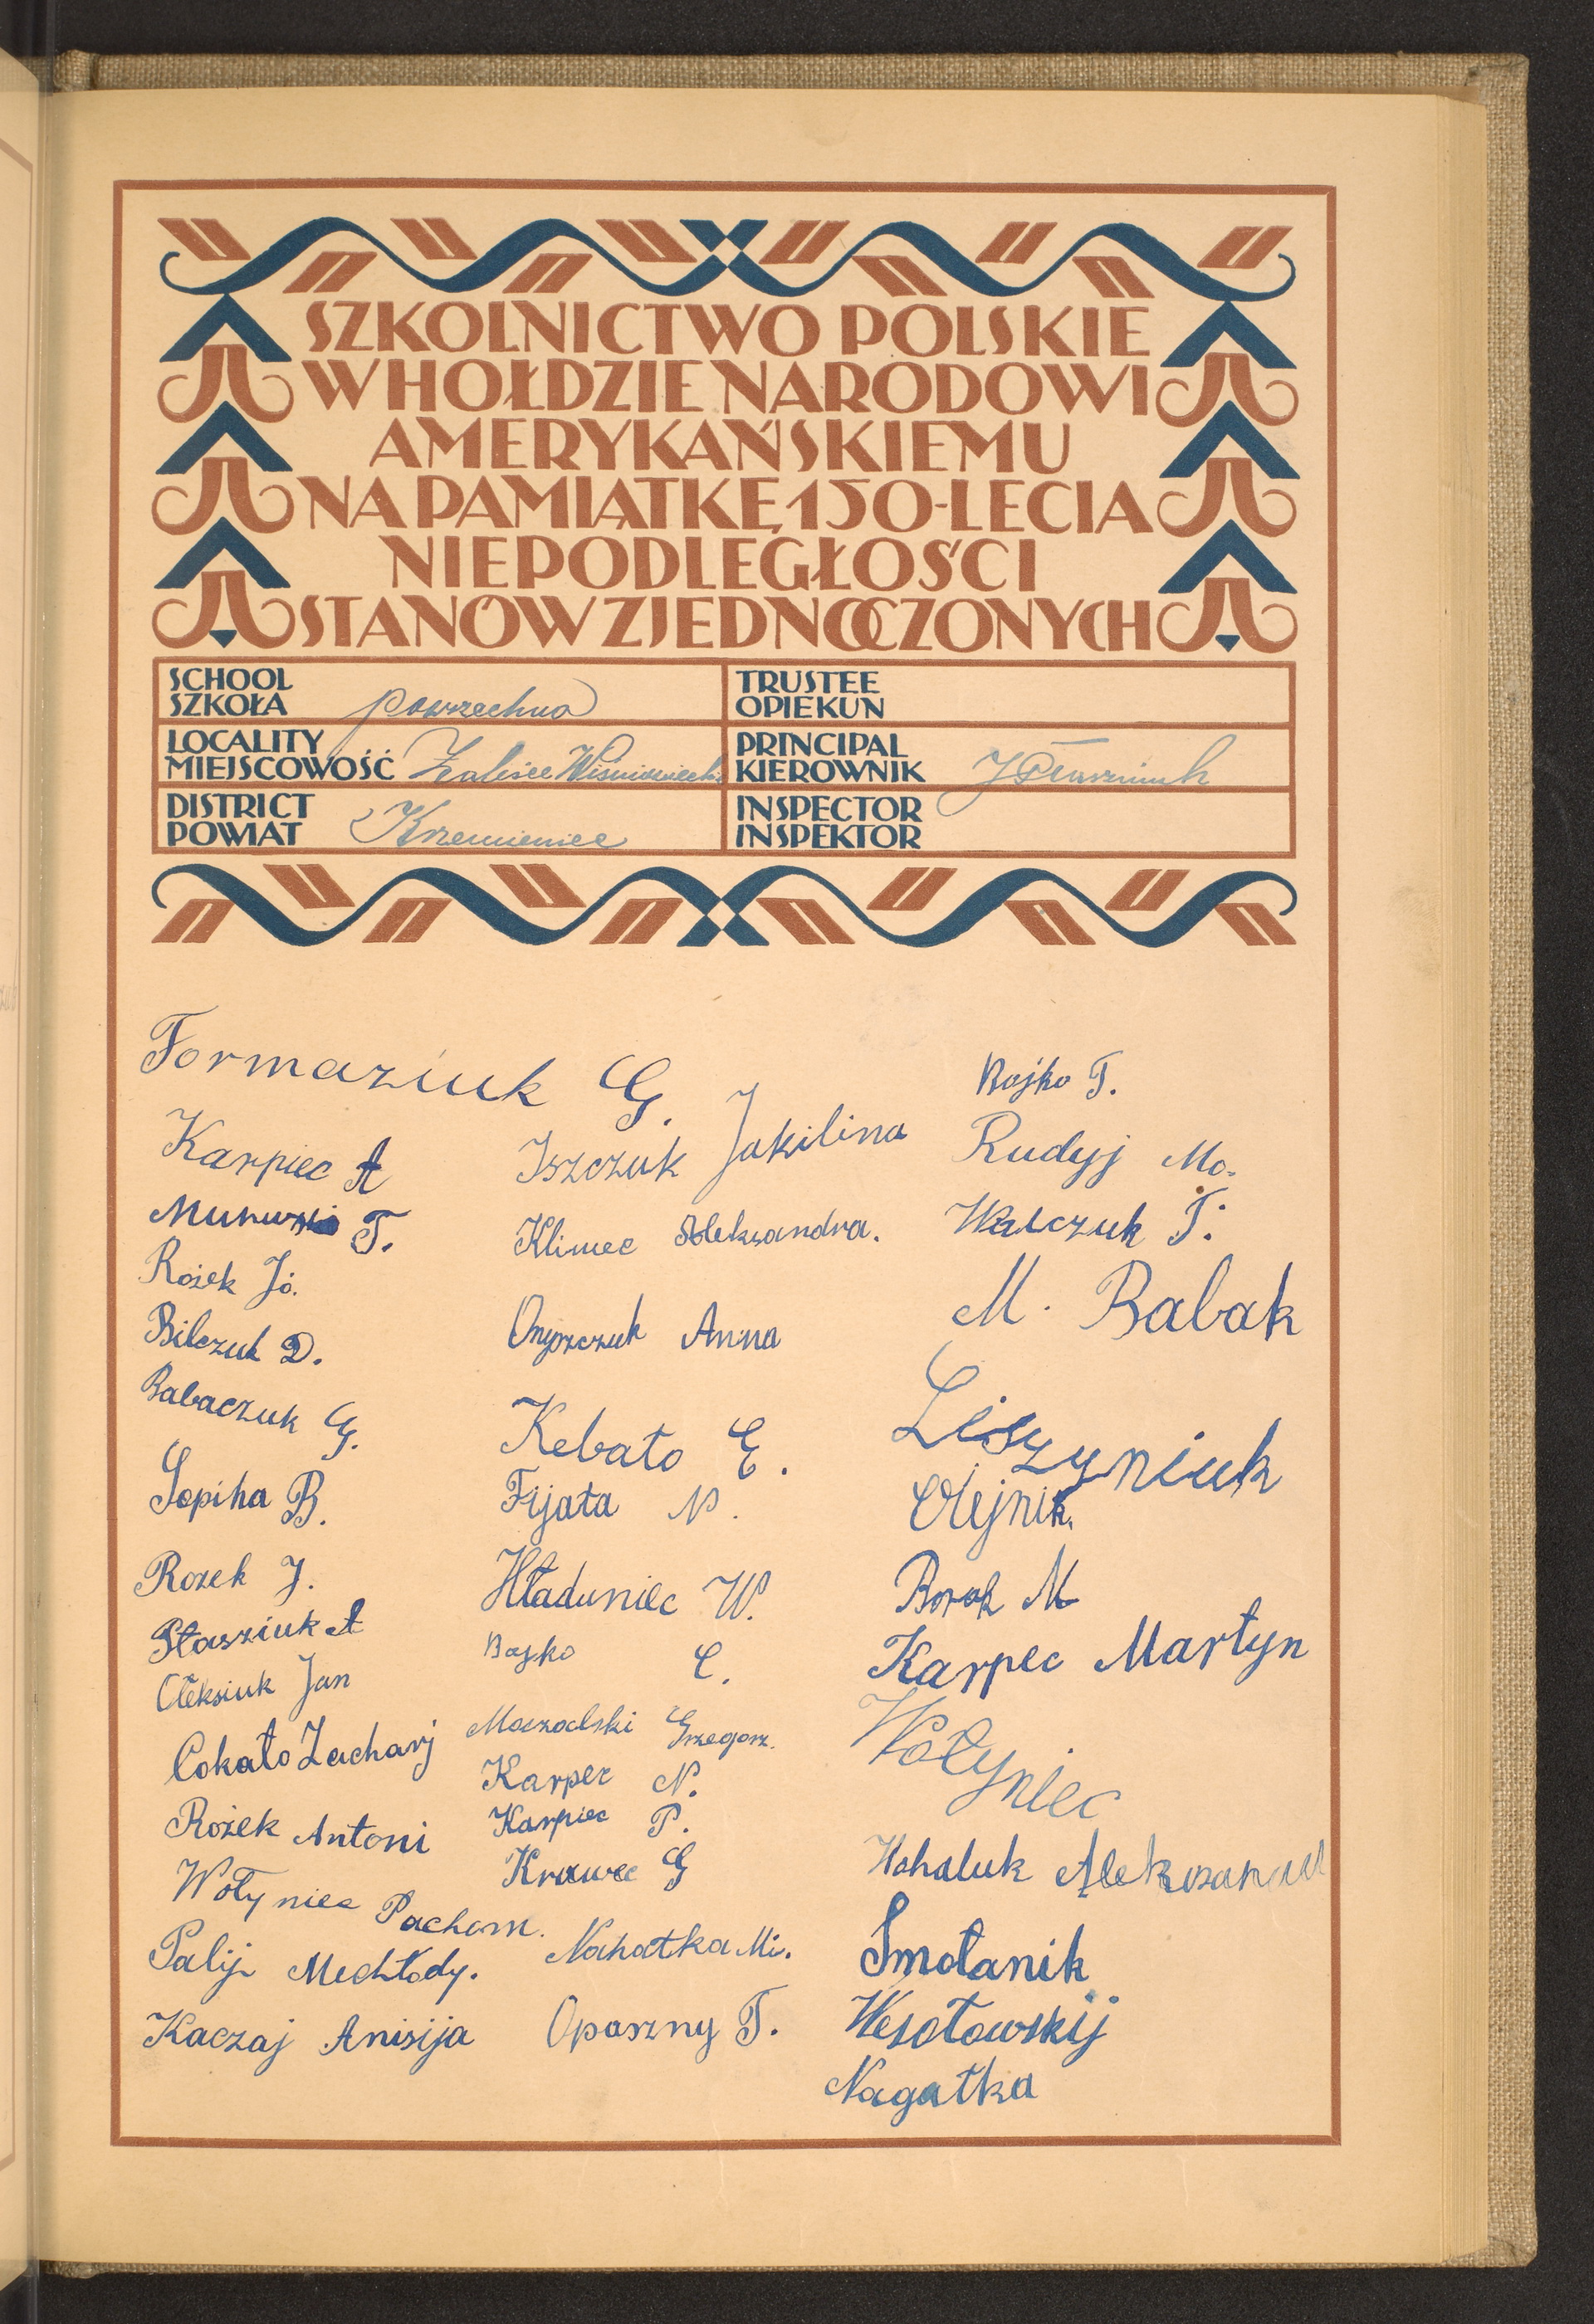 SZKOLNICTWO POLSKIE
W HOŁDZIE NARODOWI
AMERYKAŃSKIEMU
NA PAMIĄTKĘ 150-LECIA
NIEPODLEGŁOŚCI
STANÓW ZJEDNOCZONYCH
SCHOOL
SZKOŁA powszechna
TRUSTEE
OPIEKUN
LOCALITY
MIEJSCOWOŚĆ Zalisce Wiśniowieckie
PRINCIPAL
KIEROWNIK
DISTRICT
POWIAT Krzemieniec
INSPECTOR
INSPEKTOR
Formaziuk G.
Karpiec A
T.
Rożek Jó.
Bilczuk D.
Babaczuk G.
Sopiha B.
Rozek J.
Stasziuk A
Oleksiuk Jan
Cokało Zacharj
Rożek Antoni
Wołyniec Pachom.
Palij Mechłody.
Kaczaj Anisija
Iszczuk Jakilina
Klimec Aleksandra.
Onyszczuk Anna
Kebało E.
Fijała N.
Hładuniec W.
Bojko C.
Moczoalski Grzegorz.
Karpec N.
Karpiec P.
Krawec G
Nahatka Mi.
Opaszny T.
Bojko T.
Rudyj Mo.
Walczuk T.
M. Babak
Liszyniuk
Olejnik.
Borak M
Karpec Martyn
Wołyniec
Hohaluk
Smolanik
Wesołowskij
Nagatka